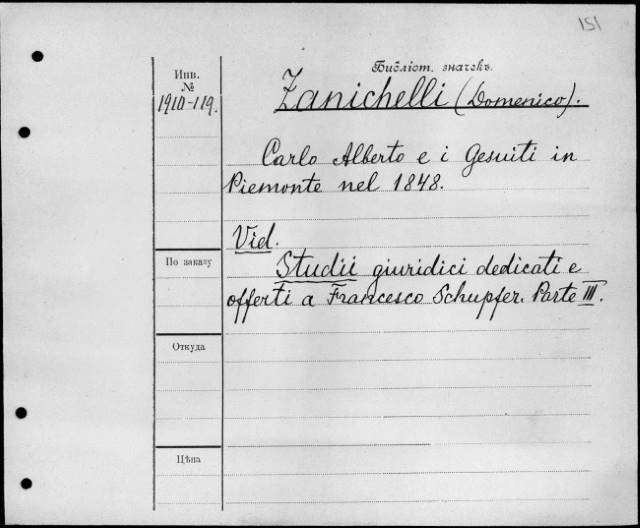 151
Библіот. значекъ.
Инв.
№
1910-119.
Zanichelli (Domenico).
Carlo Alberto e i Gesuiti in
Piemonte nel 1848.
Vid.
По заказу
Studii giuridici dedicati e
offerti a Francesco Schupfer. Parte III.
Откуда
Цѣна